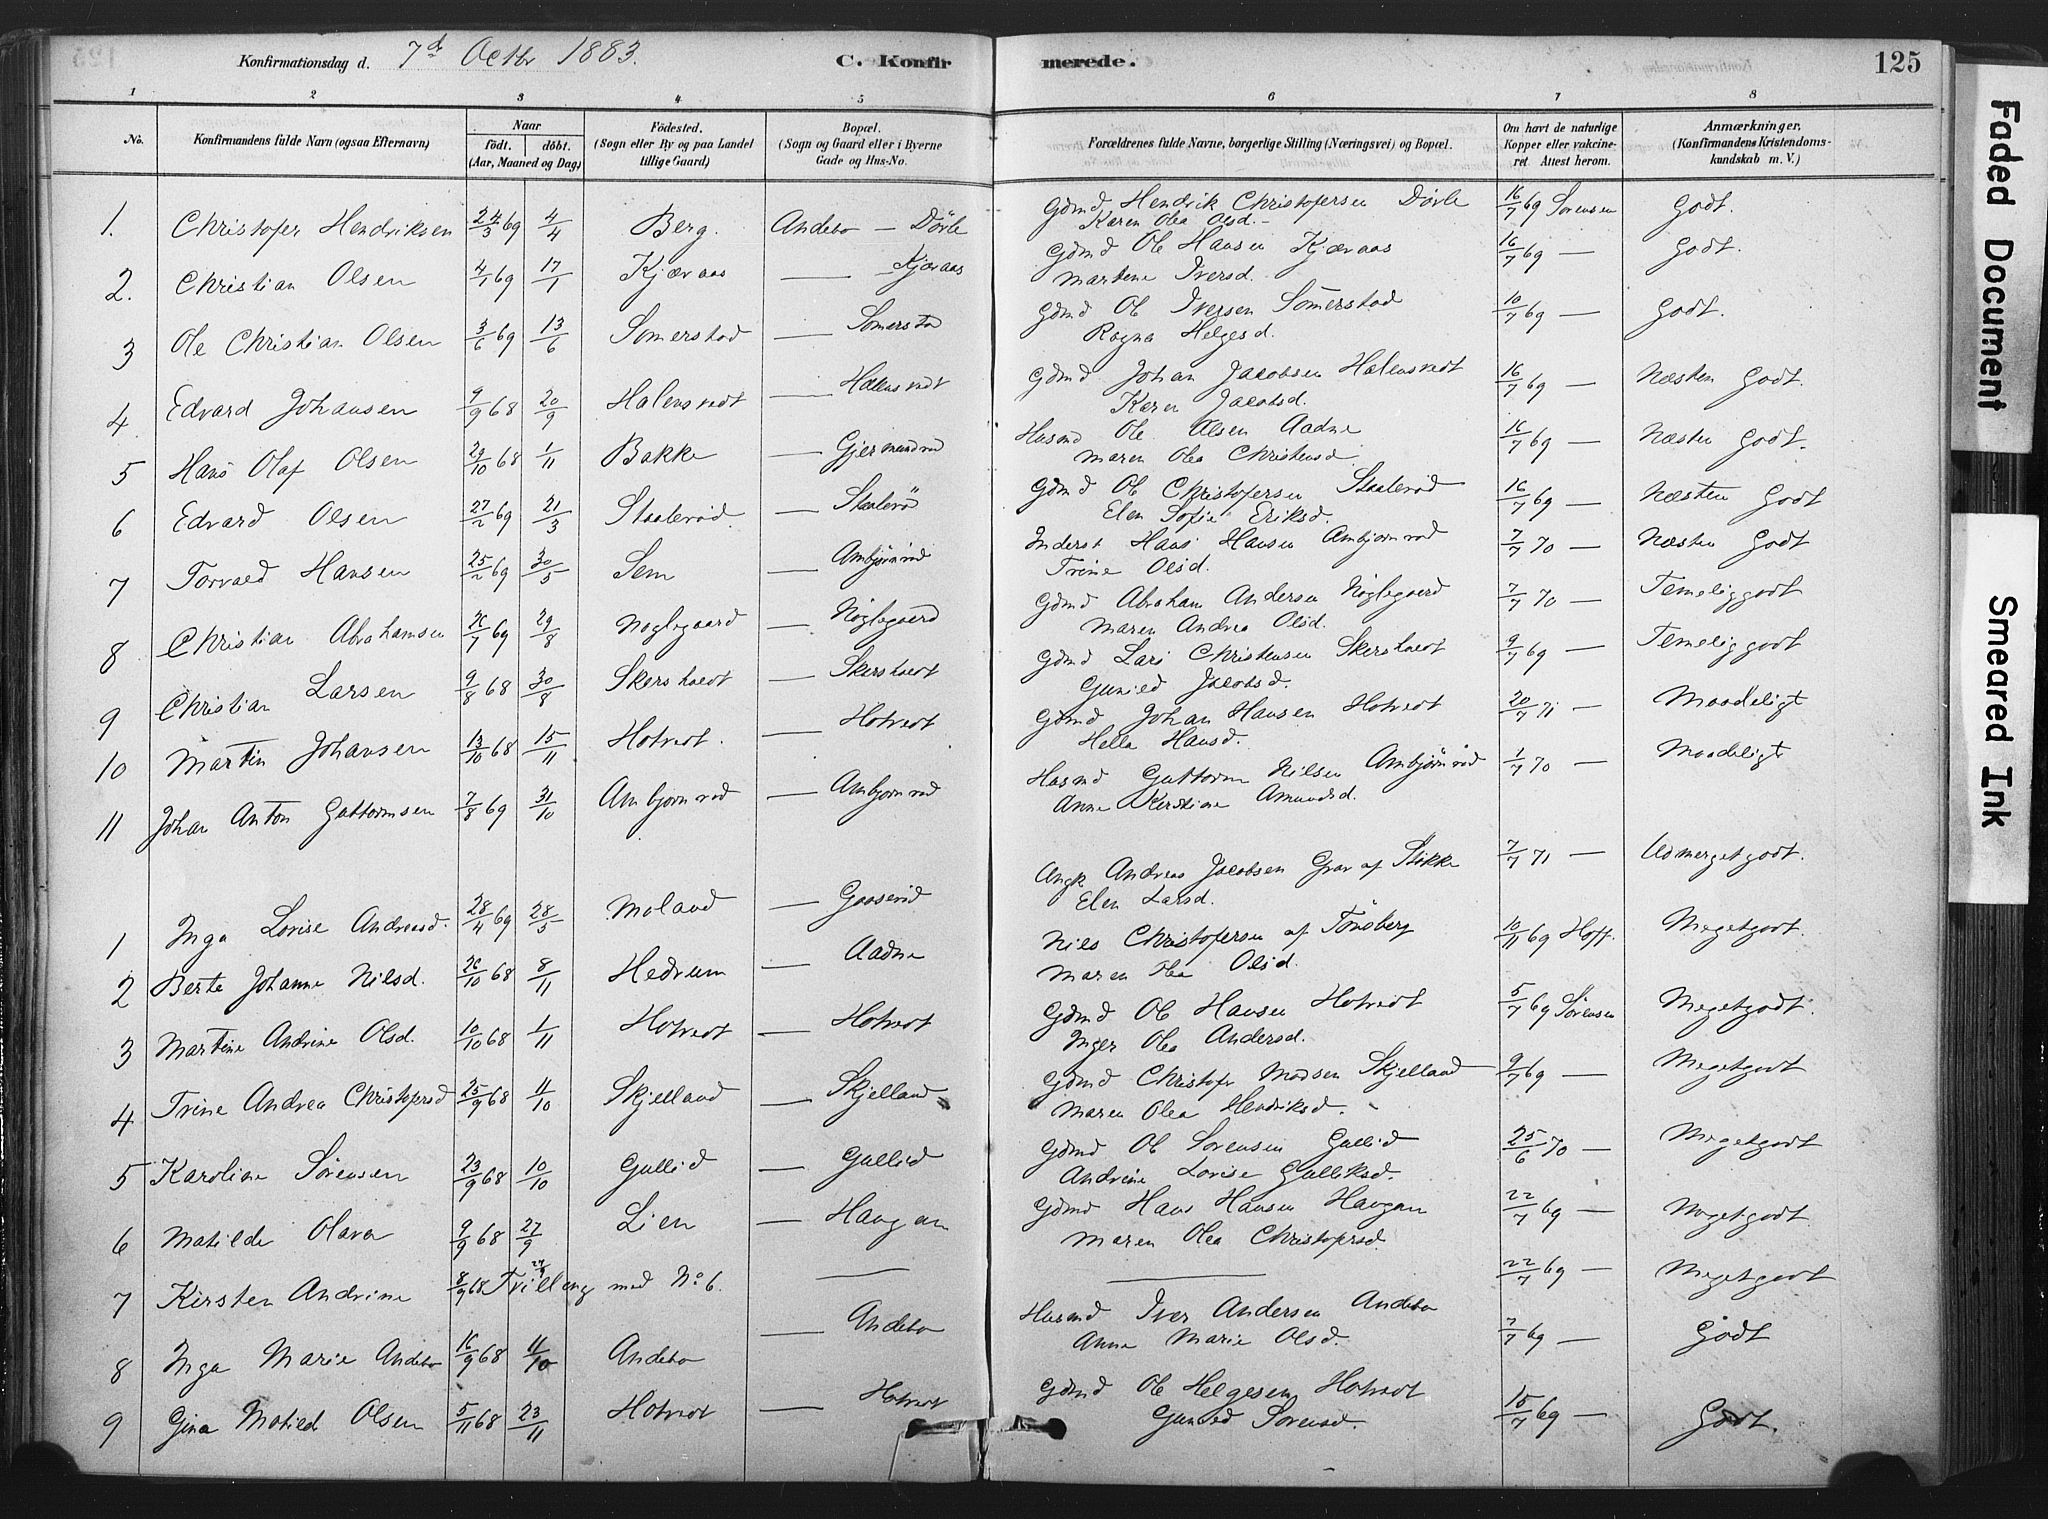 Konfirmationsdag d. 7de Octbr 1883. C. Konfirmerede. 125
1 2 3 4 5 6 7 8
No. Konfirmandens fulde Navn (ogsaa Efternavn) Naar födt. döbt. (Aar, Maaned og Dag) Födested. (Sogn eller By og paa Landet tillige Gaard) Bopæl. (Sogn og Gaard eller i Byerne Gade og Hus-No. Forældrenes fulde Navne, borgerlige Stilling (Næringsvei) og Bopæl. Om havt de naturlige Kopper eller vakcineret Attest herom. Anmærkninger. (Konfirmandens Kristendomskundskab m. V.)
1. Christofer Hendriksen 24/3 69 4/4 Berg. Andebo — Dövle Gdmd Hendrik Christofersen Dövle Karen Olea Olsd. 16/7 69 Sorensen Godt.
2. Christian Olsen 4/1 69 17/1 Kjæraas — Kjæraas Gdmd Ole Hansen Kjæraas Martene Iversd. 16/7 69 — Godt.
3 Ole Christian Olsen 3/6 69 13/6 Somerstad — Somersta Gdmd Ole Iversen Somerstad Ragna Helgesd. 10/7 69 — Godt.
4 Edvard Johansen 9/9 68 20/9 Halensvedt — Halensvedt Gdmd Johan Jacobsen Halensvedt Karen Jacobsd. 16/7 69 — Næsten Godt.
5 Hans Olaf Olsen 29/10 68 1/11 Bakke — Gjermundrød Husmd Ole Olsen Aadne Maren Olea Christensd. 16/7 69 — Næsten Godt.
6 Edvard Olsen 27/2 69 21/3 Staalerød. — Staalerö Gdmd Ole Christofersen Staalerød Elen Sofie Eriksd. 16/7 69 — Næsten Godt
7 Torvald Hansen 25/2 69 30/5 Sem — Ambjørnrød Inderst Hans Hansen Ambjørnrød Trine Olsd. 7/7 70 — Næsten Godt
8 Christian Abrahamsen 26/7 69 29/8 Nøglegaard — Nøglegaard Gdmd Abraham Andersen Nøglegaard Maren Andrea Olsd. 7/7 70 — Temelig godt
9 Christian Larsen 9/8 68 30/8 Skersholdt — Skersholdt Gdmd Lars Christensen Skersholdt Gunild Jacobsd. 9/7 69 — Temelig godt
10 Martin Johansen 13/10 68 15/11 Hotvedt. — Hotvedt Gdmd Johan Hansen Hotvedt Hella Hansd. 20/7 71 — Maadeligt
11 Johan Anton Guttormsen 7/8 69 31/10 Ambjørnrød — Ambjørnrød Husmd Guttorm Nilsen Ambjørnrød Anne Kerstine Amundsd. 1/7 70 — Maadeligt
1 Inga Lovise Andreasd. 28/4 69 28/5 Moland — Gaaserød Ungk Andreas Jacobsen Grav af Stokke Elen Larsd. 7/7 71 — Udmerget godt.
2 Berte Johanne Nilsd. 26/10 68 8/11 Hedrum — Aadne Nils Christofersen af Tönsberg Maren Olea Olsd. 10/11 69 Hoff. Megetgodt.
3 Martine Andrine Olsd. 10/10 68 1/11 Hotvedt — Hotvedt Gdmd Ole Hansen Hotvedt Inger Olea Andersd. 5/7 69 Sörensen Megetgodt.
4 Trine Andrea Christofersd 25/9 68 11/10 Skjelland — Skjelland Gdmd Christofer Madsen Skjelland Maren Olea Hendriksd. 9/7 69 — Megetgodt
5 Karoline Sörensen 23/9 68 10/10 Gullid — Gullid Gdmd Ole Sorensen Gullid Andrine Lovise Gulliksd. 25/6 70 — Megetgodt
6 Matilde Olava 9/9 68 27/9 Lien — Haugan Gdmd Hans Hansen Haugan Maren Olea Christofersd. 22/7 69 — Megetgodt
7 Kirsten Andrine 8/9 68 27/9 Tvilling med No 6. — — 22/7 69 — Megetgodt
8 Inga Marie Andebo 16/9 68 11/10 Andebo — Andebo Husmd Iver Andersen Andebo Anne Marie Olsd. 7/7 69 — Godt
9 Gina Matild Olsen 5/11 68 23/11 Hotvedt — Hotvedt Gdmd Ole Helgesen Hotvedt Gunild Sorensd. 15/7 69 — Godt.
Faded Document
Smeared Ink